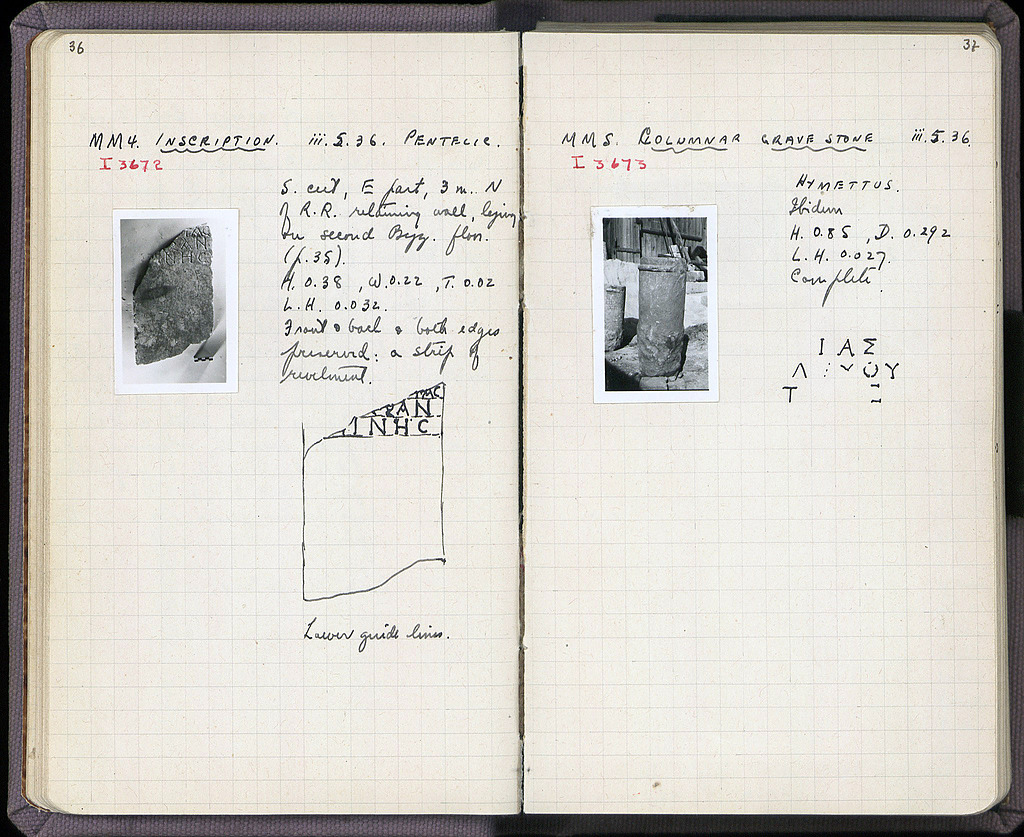 36
MM4. INSCRIPTION. iii.5.36. PENTELIC.
I 3672
S. cut, E part, 3 m. N
of R.R. retaining wall, lying
on second Byz. floor.
(p.35).
H. 0.38, W. 0.22, T. 0.02
L.H. 0.032.
Front & back & both edges
preserved: a strip of
revetment.
ΑΝ
ΙΝΗС
Lower guide lines.
37
MM5. COLUMNAR GRAVE STONE iii.5.36.
I 3673
HYMETTUS.
Ibidem
H. 0.85, D. 0.292
L.H. 0.027.
Complete.
ΙΑΣ
Τ